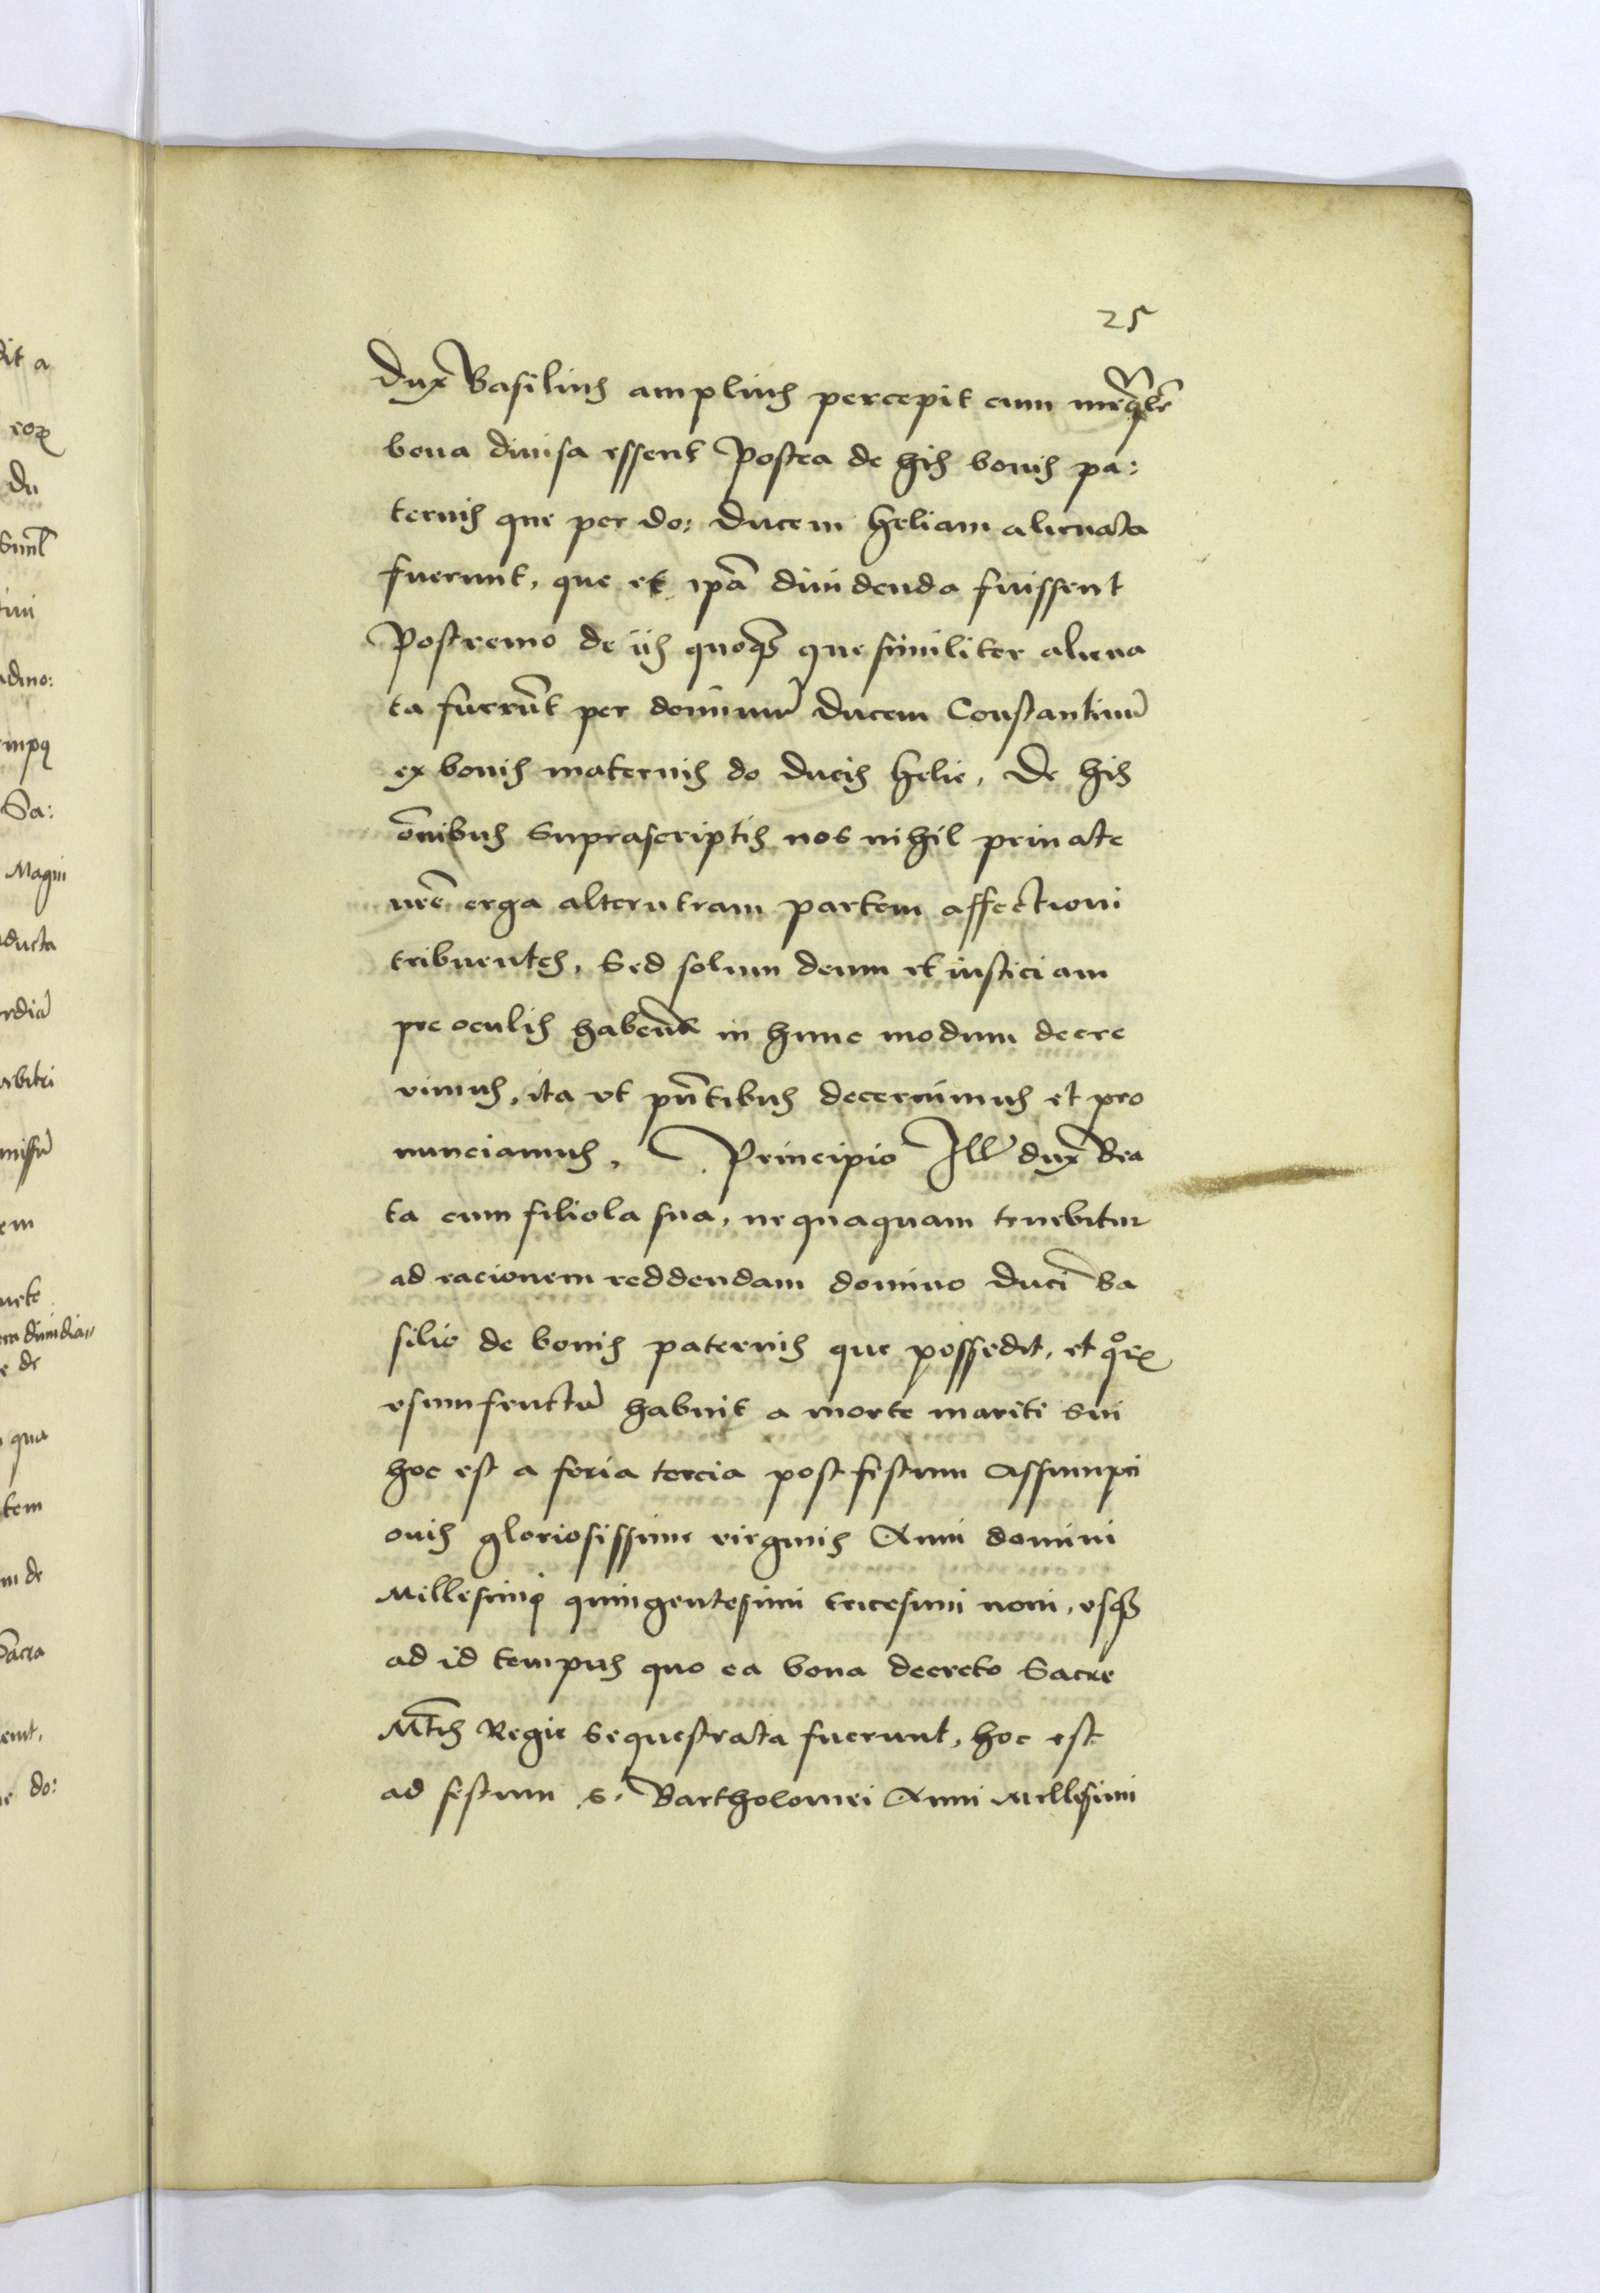 25
Dux Basilius amplius percepit cum
bona diuisa essent Postea de his bonis pa:
ternis que per do: Ducem heliam alienata
fuerunt, que et ipā diuidenda fuissent
Postremo de iis quoqȝ que similiter aliena
ta fuerūt per dominū Ducem Constantinū
ex bonis maternis do Ducis helie, De his
ōnibus Suprascriptis nos nihil priuate
nrē erga alterutram partem affectioni
tribuentes, Sed solum deum et iusticiam
pre oculis habent̄ in hunc modum decre
uimus, ita vt pn̄tibus decernimus et pro
nunciamus, Principio Ill dux Bea
ta cum filiola sua, nequaquam tenebitur
ad racionem reddendam domino Duci Ba
silio de bonis paternis que possedit, et qͦrꝝ
vsumfructū habuit a morte mariti Sui
hoc est a feria tercia post festum Assumpci
onis gloriosissime virginis Anni domini
Millesimi quingentesimi tricesimi noni, vsqȝ
ad id tempus quo ea bona decreto Sacre
Mt̄is Regie Sequestrata fuerunt, hoc est
ad festum S. Bartholomei Anni Millesimi